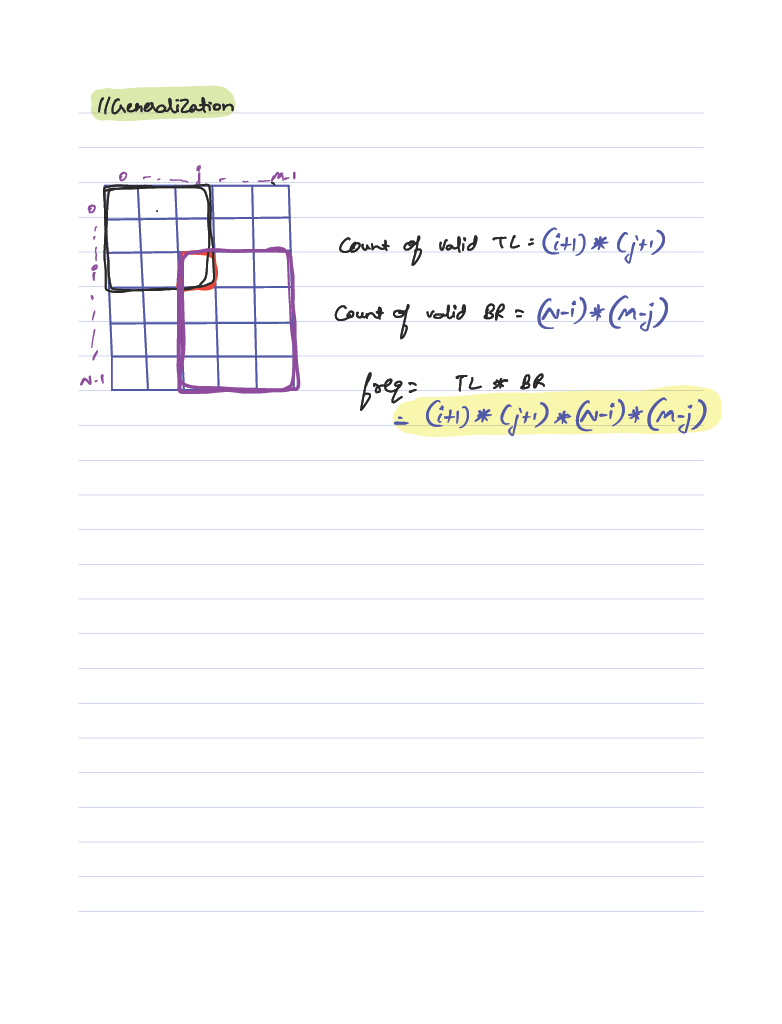 //Generalization
0 - - - j - - - M-1
0
i
N-1
Count of valid TL = (i+1) * (j+1)
Count of valid BR = (N-i) * (M-j)
freq = TL * BR
= (i+1) * (j+1) * (N-i) * (M-j)